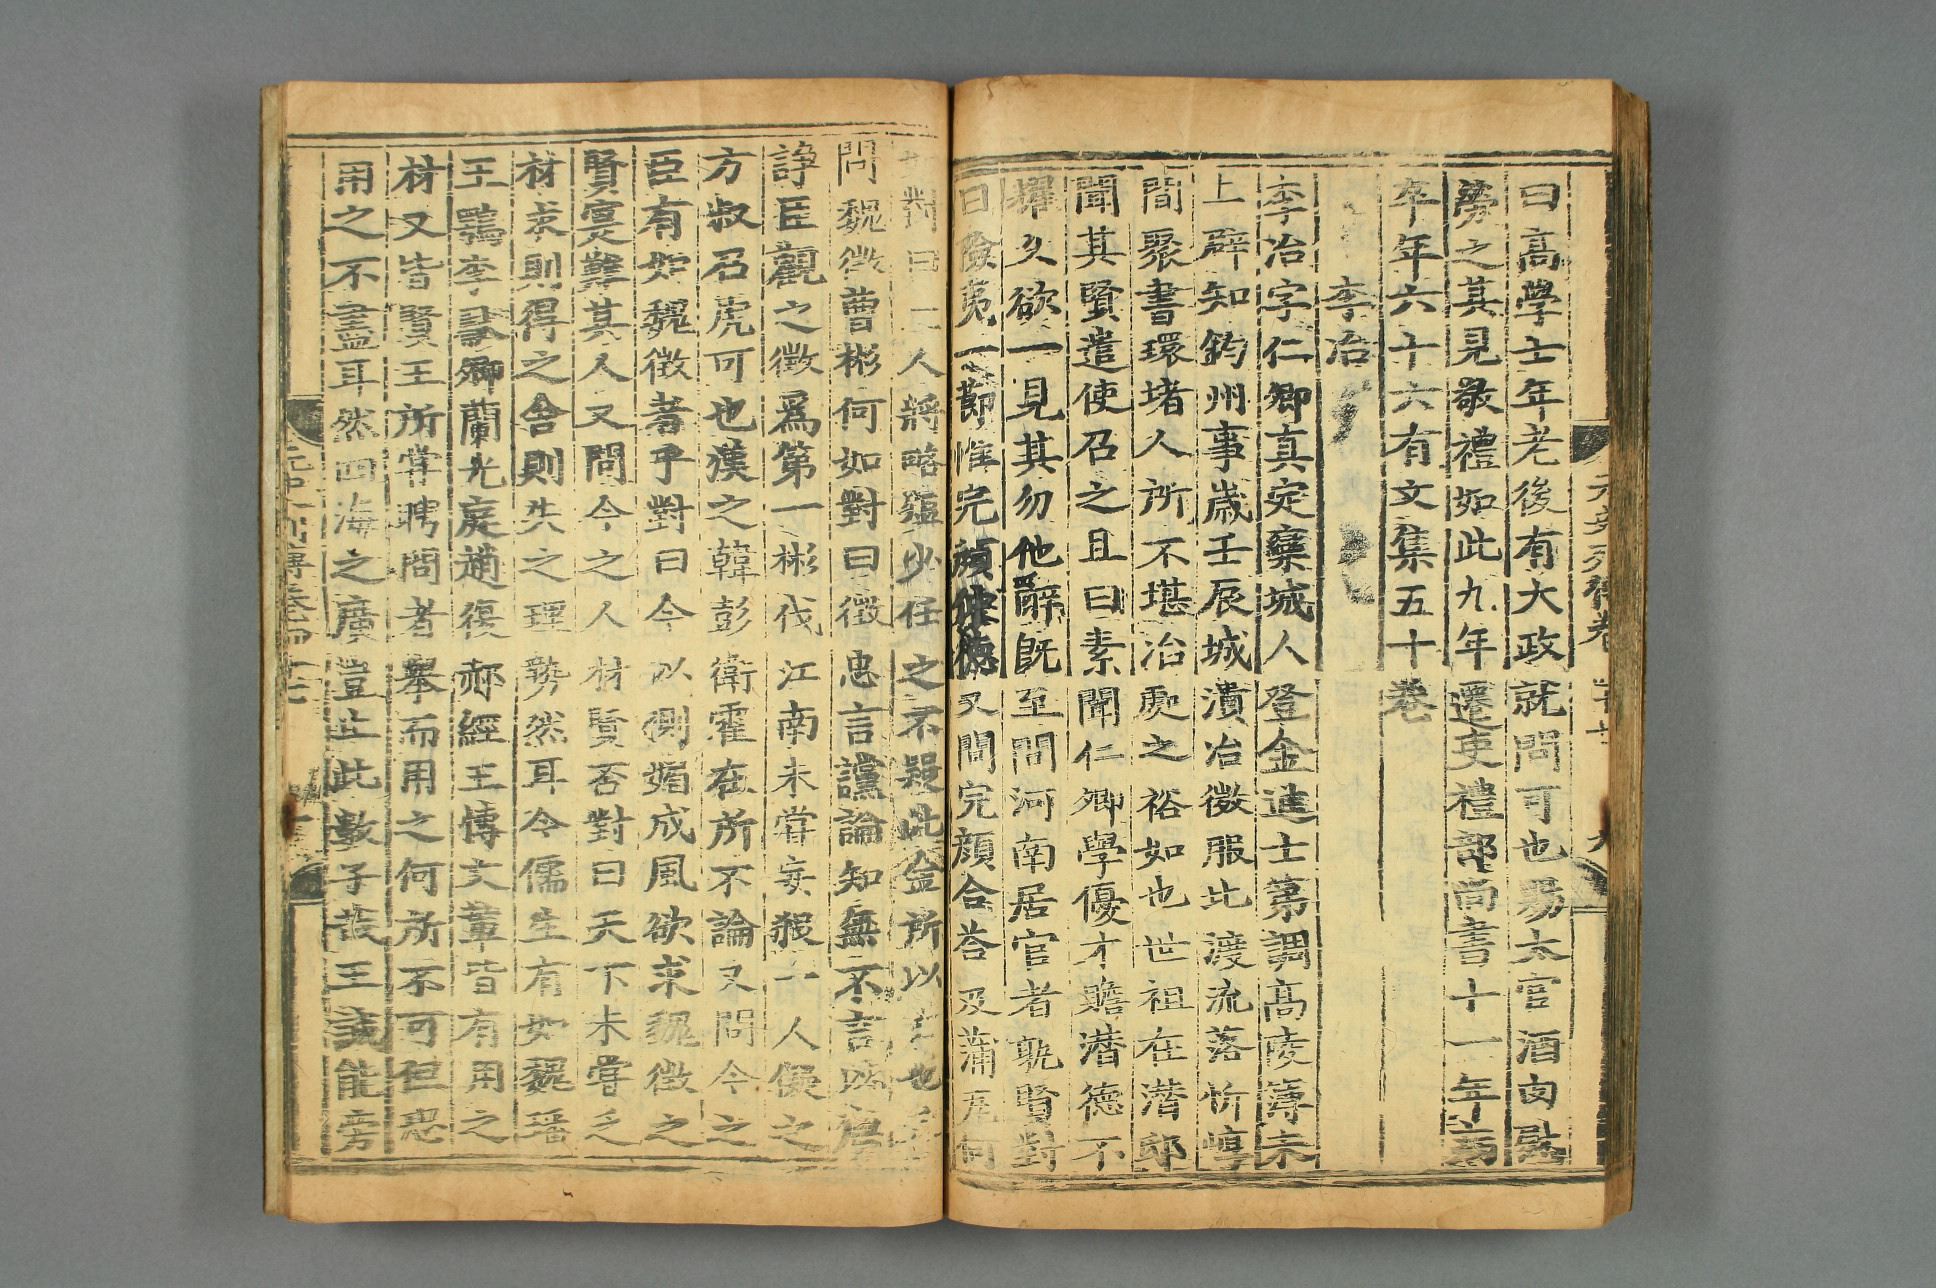 曰高學士年老後有大政就問可也賜太官酒肉慰
勞之其見敬禮如此九年遷吏禮部尚書十一年病
卒年六十六有文集五十卷
李冶
李冶字仁卿真定欒城人登金進士第調高陵簿未
上辟知鈞州事歲壬辰城潰冶微服北渡流落忻崞
間聚書環堵人所不堪冶處之裕如也世祖在潛邸
聞其賢遣使召之且曰素聞仁卿學優才贍潛德不
耀久欲一見其勿他辭既至問河南居官者孰賢對
曰險夷一節惟完顏仲德又問完顏合荅及蒲瓦何
如對曰二人將略短少任之不疑此金所以亡也又
問魏徵曹彬何如對曰徵忠言讜論知無不言以唐
諍臣觀之徵爲第一彬伐江南未嘗妄殺一人儗之
方叔召虎可也漢之韓彭衛霍在所不論又問今之
臣有如魏徵者乎對曰今以側媚成風欲求魏徵之
賢實難其人又問今之人材賢否對曰天下未嘗乏
材求則得之舍則失之理勢然耳今儒生有如魏璠
王鶚李獻卿蘭光庭趙復郝經王博文輩皆有用之
材又皆賢王所嘗聘問者舉而用之何所不可但恐
用之不盡耳然四海之廣豈止此數子哉王誠能旁